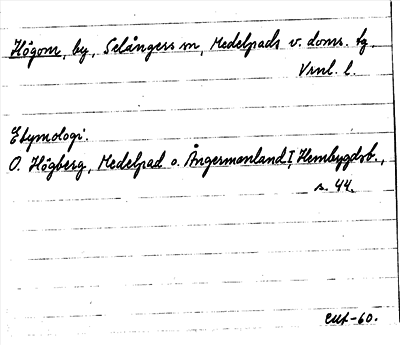 Högom, by, Selångers sn, Medelpads v. doms. tg.
Vrnl. l.
Etymologi.
O. Högberg, Medelpad o. Ångermanland I, Hembygdsb.,
s. 44.
-60.